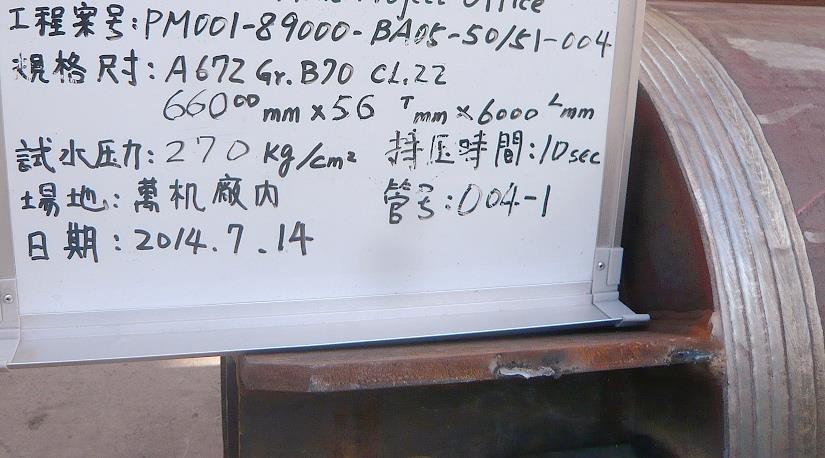 Project Office
工程案号:PM001-89000-BA05-50/51-004
規格尺寸:A672 Gr.B70 CL.22
660ᴼᴰmm×56 ᵀmm×6000 ᴸmm
試水压力:270 Kg/cm² 持压時間:10sec
場地:萬机廠內 管号:004-1
日期:2014.7.14